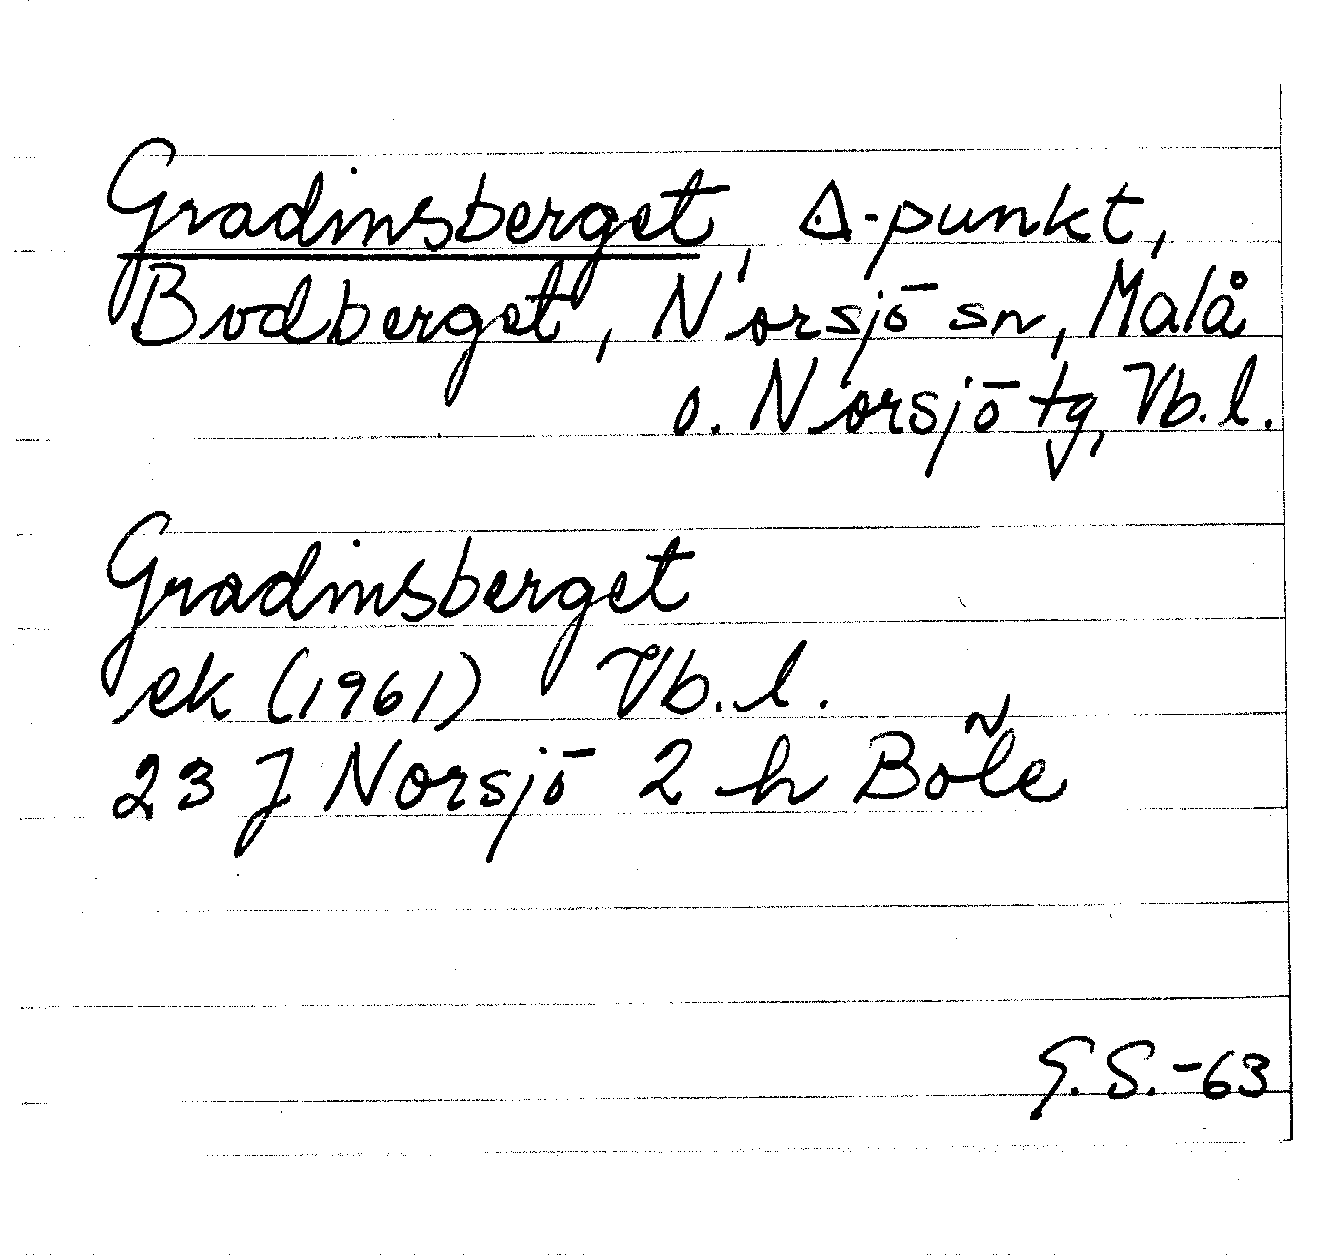 Gradinsberget, △-punkt,
Bodberget, Norsjö sn, Malå
o. Norsjö tg, Vb.l.
Gradinsberget
ek (1961) Vb.l.
23 J Norsjö 2 h Böle
G.S.-63